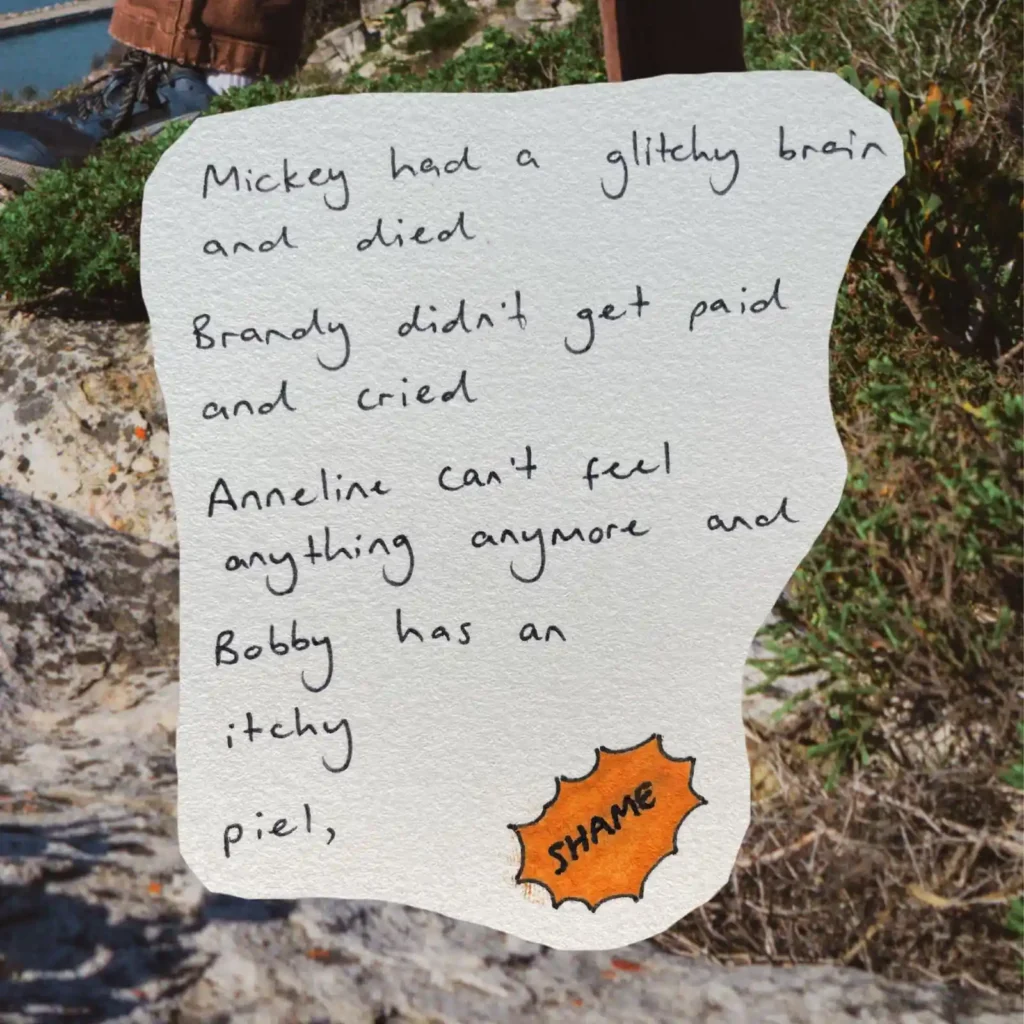 Mickey had a glitchy brain
and died
Brandy didn't get paid
and cried
Anneline can't feel
anything anymore and
Bobby has an
itchy
piel,
SHAME